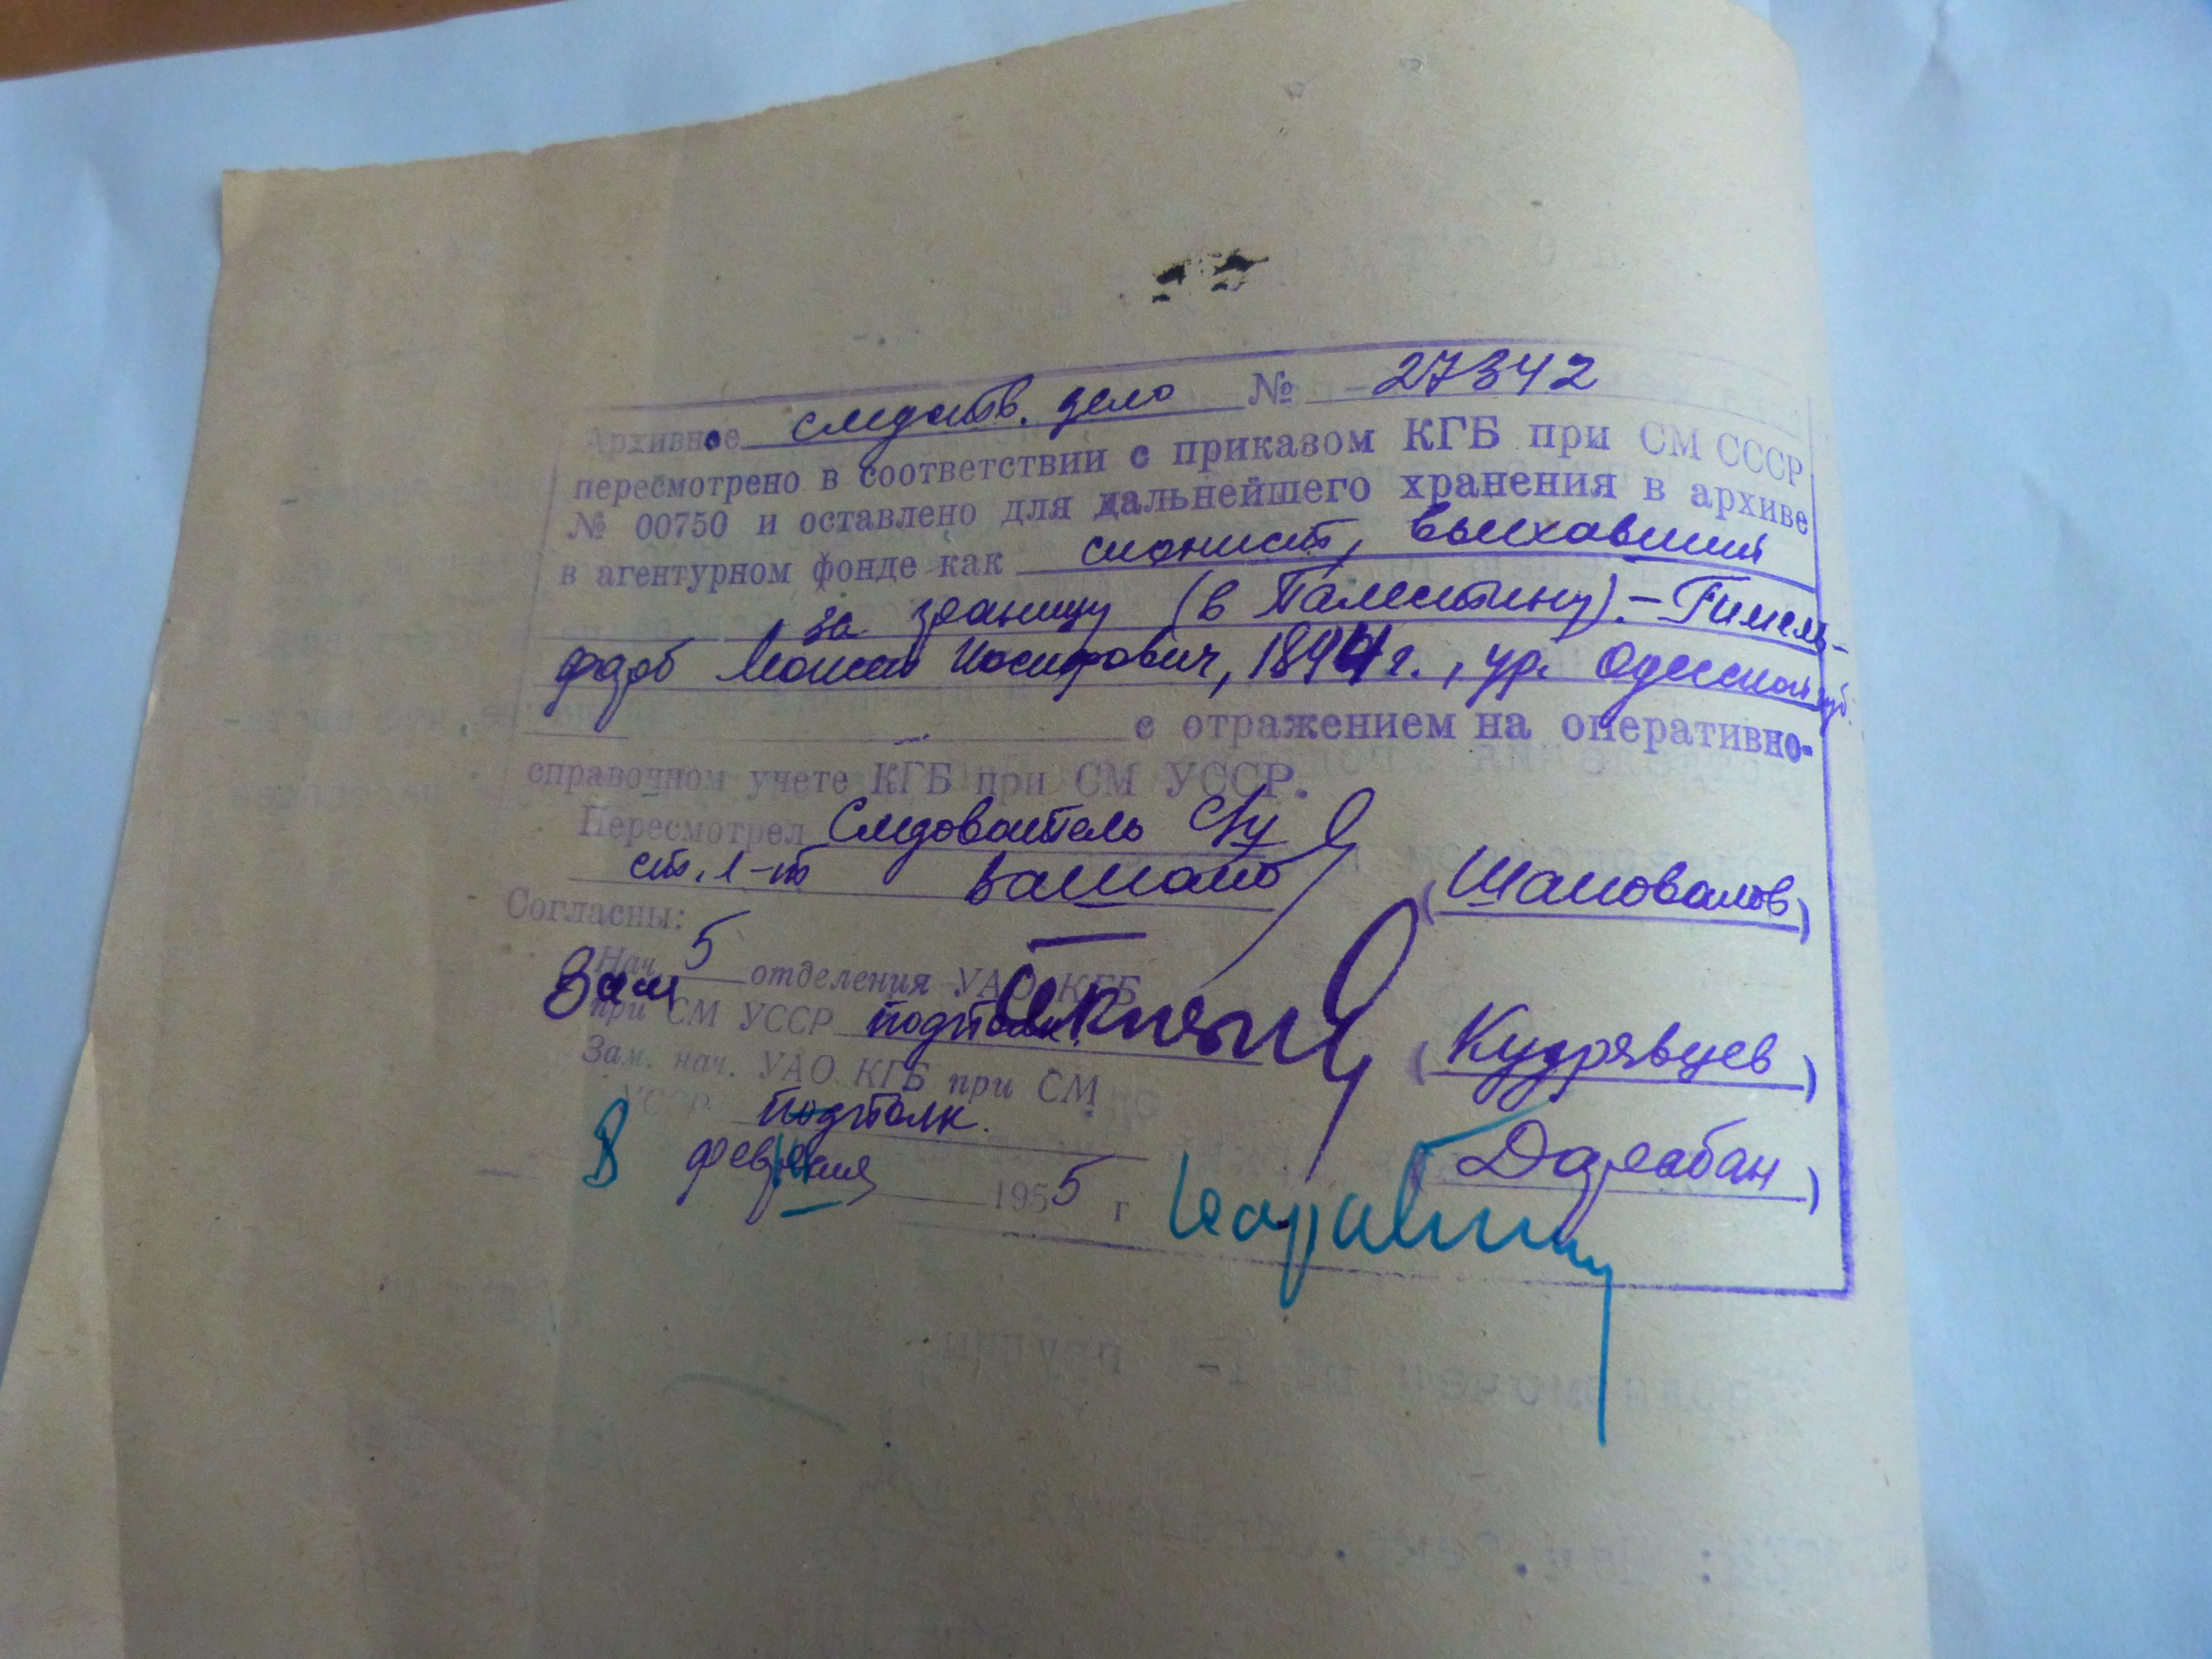 Архивное следств. дело № 27342
пересмотрено в соответствии с приказом КГБ при СМ СССР
№ 00750 и оставлено для дальнейшего хранения в архиве
в агентурном фонде как сионист, выехавший
за границу (в Палестину). – Гимель-
фарб Моисей Иосифович, 1894 г., ур. Одесской губ.
с отражением на оперативно-
справочном учете КГБ при СМ УССР.
Пересмотрел Следователь
ст. л-т (Шаповалов)
Согласны:
Зам Нач 5 отделения УАО КГБ
при СМ УССР подполк. (Кудрявцев)
Зам. нач. УАО КГБ при СМ
УССР подполк. (Дарабан)
февраля 1955 г